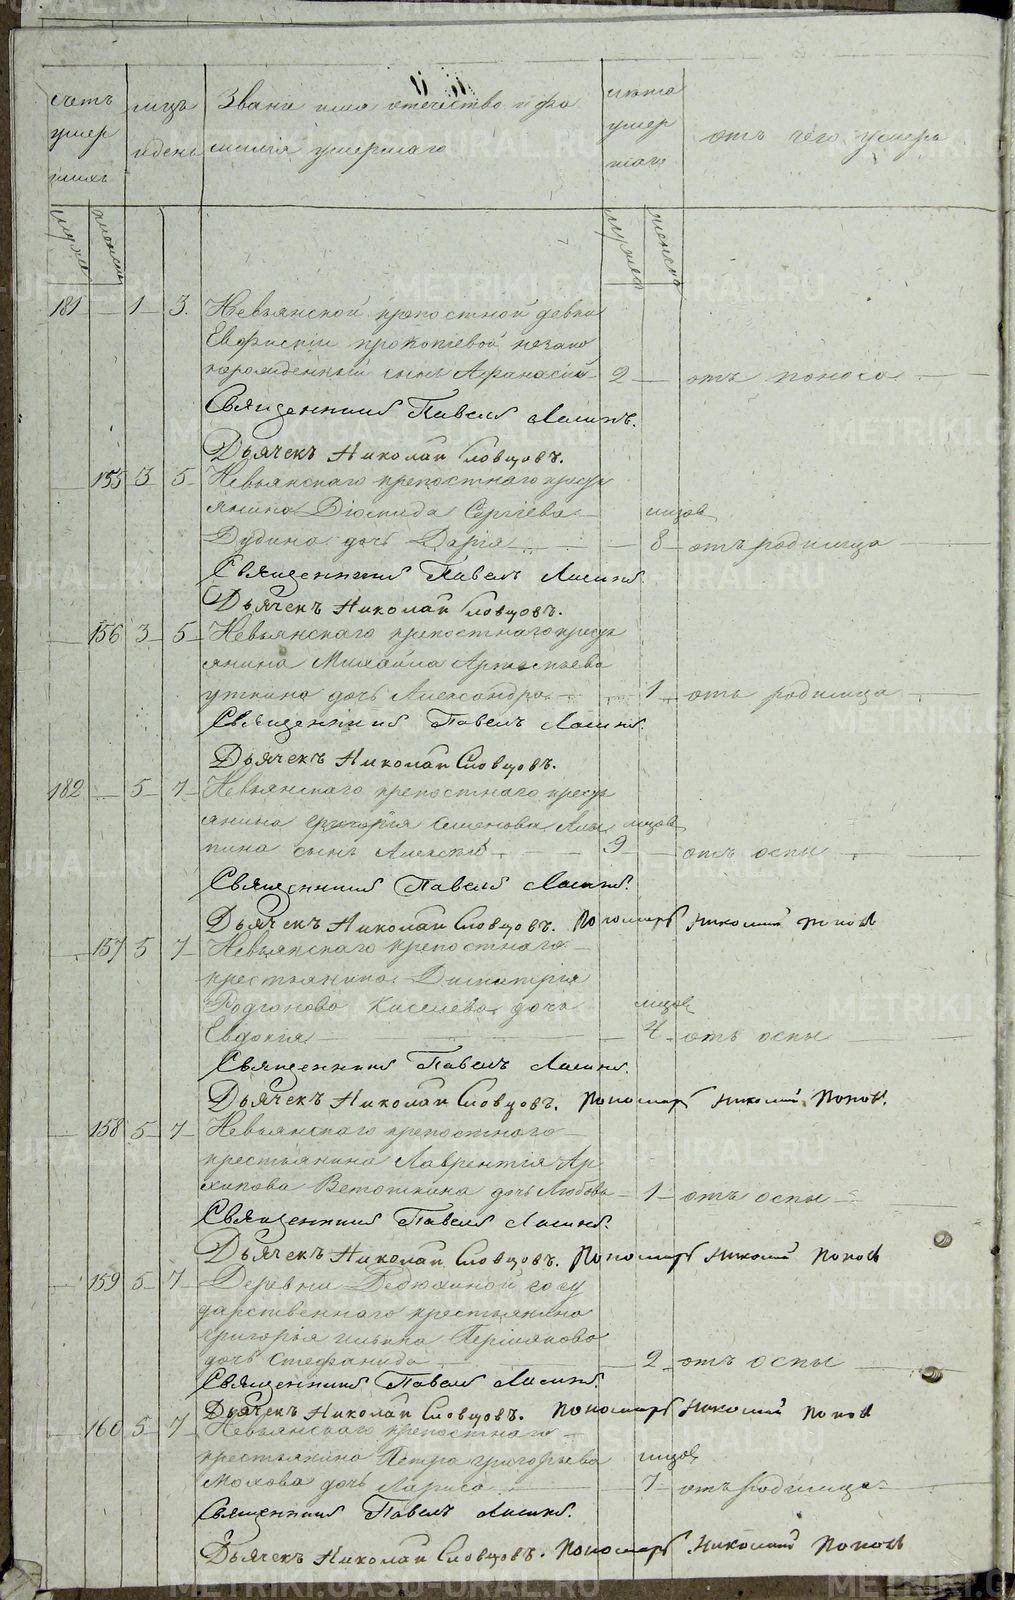 счетъ умер шихъ
мцъ и день
Званіе имя отечество и фа
милія умершаго
лѣта умер шаго
отъ чего умеръ
мужеск женск
мужеск женск
181 — 1 — 3. Невьянской крѣпостной девки
Евфросиніи Прокопьевой незако
норожденный сынъ Афанасій 2 — отъ поноса
Священникъ Павелъ
Дьячекъ Николай Словцовъ.
155 3 5 Невьянскаго крепостнаго кресть
янина Діомида Сергіева мцов
Дудина дочь Дарія 8 отъ родимца
Священникъ Павелъ
Дьячекъ Николай Словцовъ.
156 3 5 Невьянскаго крепостнаго кресть
янина Михайла Артемьева
Уткина дочь Александра 1 отъ родимца
Священникъ Павелъ
Дьячекъ Николай Словцовъ.
182 5 7 Невьянскаго крепостнаго кресть
янина Григорія Семенова мцов
сынъ Алексѣй 9 отъ оспы
Священникъ Павелъ
Дьячекъ Николай Словцовъ. Пономарь Николай Поповъ
157 5 7 Невьянскаго крепостнаго
крестьянина Димитрія
Родіонова Киселева дочь мцов
Евдокія 4 отъ оспы
Священникъ Павелъ
Дьячекъ Николай Словцовъ. Пономарь Николай Поповъ.
158 5 7 Невьянскаго крепостнаго
крестьянина Лаврентія Ар
хипова Ветошкина дочь Любовь 1 отъ оспы
Священникъ Павелъ
Дьячекъ Николай Словцовъ. Пономарь Николай Поповъ
159 5 7 Деревни госу
дарственнаго крестьянина
Григорья Ильина Пермякова
дочь Стефанида 2 отъ оспы
Священникъ Павелъ
Дьячекъ Николай Словцовъ. Пономарь Николай Поповъ
160 5 7 Невьянскаго крепостнаго
крестьянина Петра Григорьева мцов
Мохова дочь Лариса 7 отъ родимца
Священникъ Павелъ
Дьячекъ Николай Словцовъ. Пономарь Николай Поповъ
METRIKI.GASO-URAL.RU